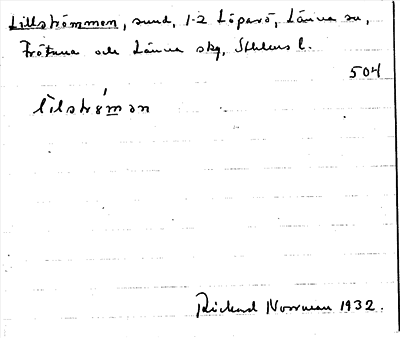 Lillströmmen, sund, 1-2 Löparö, Länna sn,
Frötuna och Länna skg, Sthlms l.
504
lìlstrǿmən
Rickard Norrman 1932.